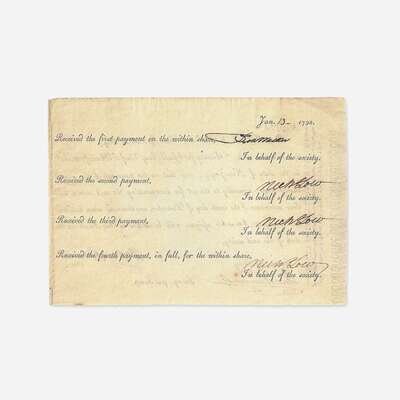 Jan. 13 1792.
Received the first payment on the within share,
In behalf of the society.
Received the second payment, Nich Low
In behalf of the society.
Received the third payment, Nich Low
In behalf of the society.
Received the fourth payment, in full, for the within share, Nich Low
In behalf of the society.